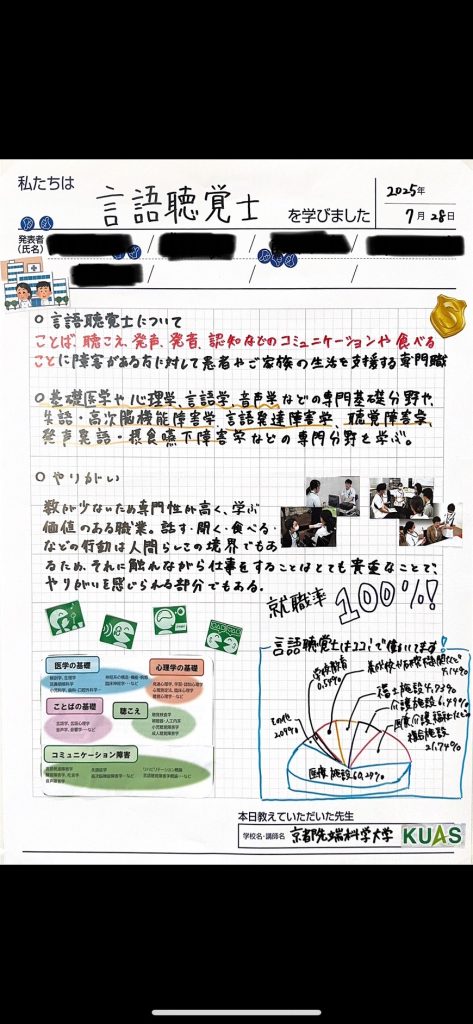 私たちは
言語聴覚士
を学びました
2025年
7月28日
発表者
(氏名)
○ 言語聴覚士について
ことば、聴こえ、発声、発音、認知などのコミュニケーションや食べる
ことに障害がある方に対して患者やご家族の生活を支援する専門職
○ 基礎医学や心理学、言語学、音声学などの専門基礎分野や、
失語・高次脳機能障害学、言語発達障害学、聴覚障害学、
発声発語・摂食嚥下障害学などの専門分野を学ぶ。
○ やりがい
数が少ないため専門性が高く、学ぶ
価値のある職業。話す・聞く・食べる・
などの行動は人間らしさの境界でもあ
るため、それに触れながら仕事をすることはとても貴重なことで、
やりがいを感じられる部分でもある。
就職率100%!
言語聴覚士はココ!で働いてます!
学校教育
0.54%
その他
介護施設
医療施設
医学の基礎
心理学の基礎
ことばの基礎
聴こえ
コミュニケーション障害
本日教えていただいた先生
学校名・講師名
京都先端科学大学
KUAS